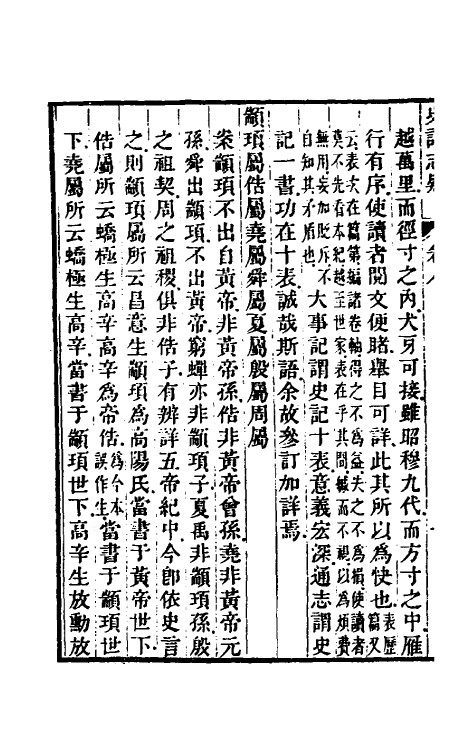 史記志疑 卷八
越萬里而徑寸之內犬牙可接雖昭穆九代而方寸之中雁
行有序使讀者閱文便睹舉目可詳此其所以為快也表歷篇又
云表次在篇第編諸卷軸得之不為益失之不為損使讀者
莫不先看本紀越至世家表在乎其間緘而不視以為煩費
無用妄加貶斥不自知其矛盾也大事記謂史記十表意義宏深通志謂史
記一書功在十表誠哉斯語余故參訂加詳焉
顓頊屬俈屬堯屬舜屬夏屬殷屬周屬
案顓頊不出自黃帝非黃帝孫俈非黃帝曾孫堯非黃帝元
孫舜出顓頊不出黃帝窮蟬亦非顓頊子夏禹非顓頊孫殷
之祖契周之祖稷俱非俈子有辨詳五帝紀中今卽依史言
之則顓頊屬所云昌意生顓頊為高陽氏當書于黃帝世下
俈屬所云蟜極生高辛高辛為帝俈為今本誤作生當書于顓頊世
下堯屬所云蟜極生高辛當書于顓頊世下高辛生放勳放